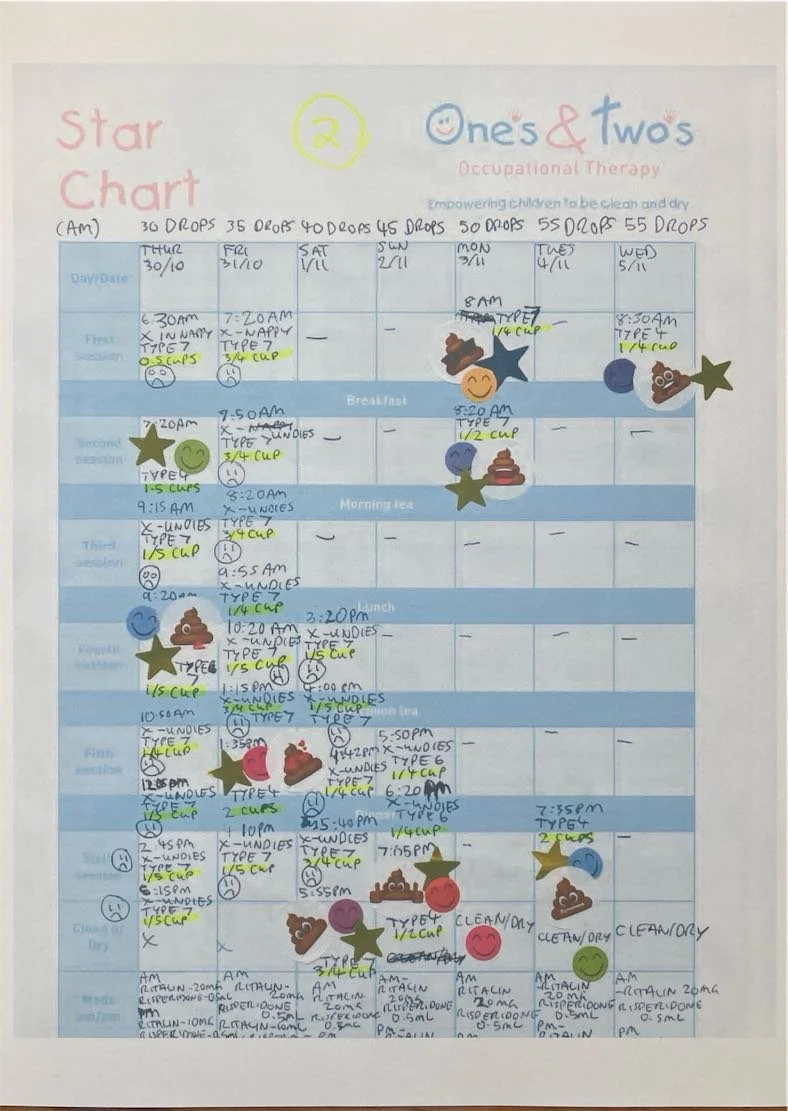 Star
Chart
2
One's & Two's
Occupational Therapy
Empowering children to be clean and dry
(AM) 30 DROPS 35 DROPS 40 DROPS 45 DROPS 50 DROPS 55 DROPS 55 DROPS
Day/Date
THUR
30/10
FRI
31/10
SAT
1/11
SUN
2/11
MON
3/11
TUES
4/11
WED
5/11
First
session
6:30AM
X IN NAPPY
TYPE 7
0.5 CUPS
7:20AM
X-NAPPY
TYPE 7
3/4 CUP
—
–
8AM
TYPE 7
1/4 CUP
–
8:30AM
TYPE 4
1/4 CUP
Breakfast
Second
session
7:20AM
TYPE 4
1.5 CUPS
7:50AM
X-UNDIES
TYPE 7
3/4 CUP
–
–
8:20AM
TYPE 7
1/2 CUP
–
–
Morning tea
Third
session
9:15AM
X-UNDIES
TYPE 7
1/5 CUP
8:20AM
X-UNDIES
TYPE 7
3/4 CUP
9:55AM
X-UNDIES
TYPE 7
1/4 CUP
–
–
–
–
–
Lunch
Fourth
session
9:20am
TYPE
7
1/5 CUP
10:20 AM
X-UNDIES
TYPE 7
1/5 CUP
1:15PM
X-UNDIES
3/4 CUP
TYPE 7
3:20PM
X-UNDIES
TYPE 7
1/5 CUP
4:00 PM
X-UNDIES
1/5 CUP
TYPE 7
–
–
–
–
tea
Fifth
session
10:50AM
X-UNDIES
TYPE 7
1/4 CUP
X-UNDIES
TYPE 7
1/5 CUP
1:35PM
TYPE 4
2 CUPS
4:42PM
X-UNDIES
TYPE 7
1/4 CUP
5:50PM
X-UNDIES
TYPE 6
1/4 CUP
6:20 PM
X-UNDIES
TYPE 6
1/4 CUP
–
–
–
session
2:45PM
X-UNDIES
TYPE 7
1/5 CUP
X-UNDIES
TYPE 7
1/5 CUP
1:10PM
X-UNDIES
TYPE 7
1/5 CUP
5:40PM
X-UNDIES
TYPE 7
3/4 CUP
5:55PM
TYPE 7
3/4 CUP
TYPE 4
1/2 CUP
–
7:35PM
TYPE 4
2 CUPS
–
Dry
X
X
CLEAN/DRY
CLEAN/DRY
CLEAN/DRY
Meds
AM
RITALIN-20mg
PM
RITALIN-10MG
AM
RITALIN-
20MG
RISPERIDONE
0.5ML
AM
RITALIN
20MG
RISPERIDONE
0.5ML
PM
AM-
RITALIN
20MG
RISPERIDONE
0.5ML
PM-
RITALIN
AM
RITALIN
20MG
RISPERIDONE
0.5ML
AM
-RITALIN
20MG
RISPERIDONE
0.5ML
PM-
RITALIN
AM
-RITALIN 20MG
RISPERIDONE
0.5ML
PM